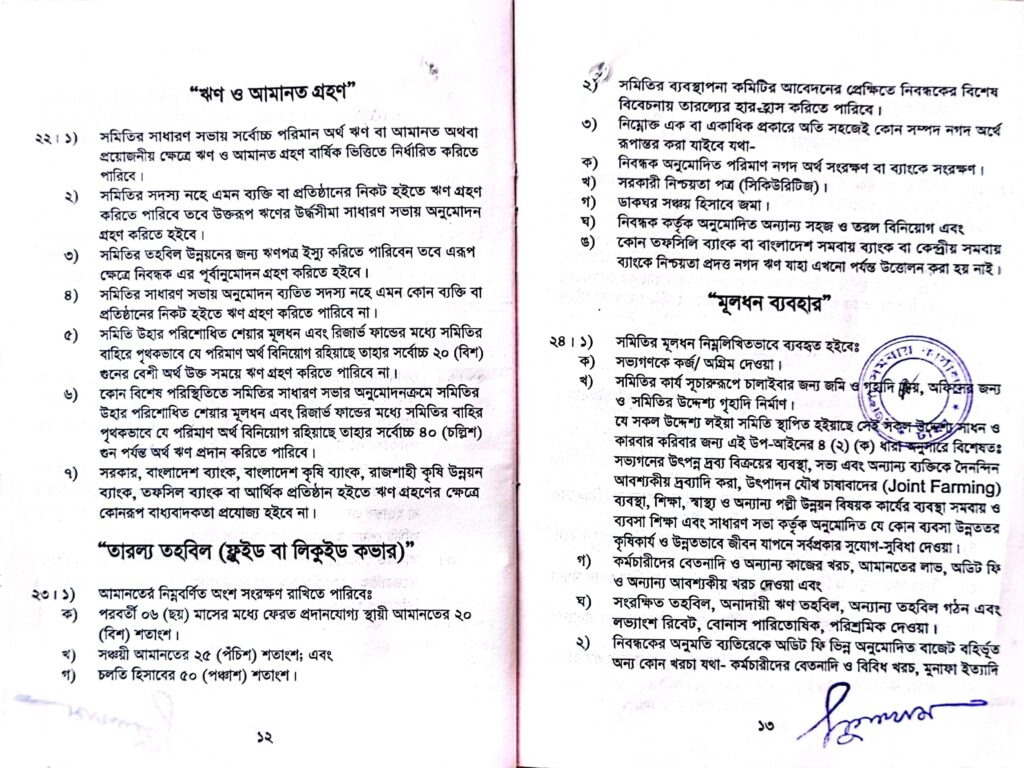 “ঋণ ও আমানত গ্রহণ”
২২। ১) সমিতির সাধারণ সভায় সর্বোচ্চ পরিমান অর্থ ঋণ বা আমানত অথবা
প্রয়োজনীয় ক্ষেত্রে ঋণ ও আমানত গ্রহণ বার্ষিক ভিত্তিতে নির্ধারিত করিতে
পারিবে।
২) সমিতির সদস্য নহে এমন ব্যক্তি বা প্রতিষ্ঠানের নিকট হইতে ঋণ গ্রহণ
করিতে পারিবে তবে উক্তরূপ ঋণের উর্দ্ধসীমা সাধারণ সভায় অনুমোদন
গ্রহণ করিতে হইবে।
৩) সমিতির তহবিল উন্নয়নের জন্য ঋণপত্র ইস্যু করিতে পারিবেন তবে এরূপ
ক্ষেত্রে নিবন্ধক এর পূর্বানুমোদন গ্রহণ করিতে হইবে।
৪) সমিতির সাধারণ সভায় অনুমোদন ব্যতিত সদস্য নহে এমন কোন ব্যক্তি বা
প্রতিষ্ঠানের নিকট হইতে ঋণ গ্রহণ করিতে পারিবে না।
৫) সমিতি উহার পরিশোধিত শেয়ার মূলধন এবং রিজার্ভ ফান্ডের মধ্যে সমিতির
বাহিরে পৃথকভাবে যে পরিমাণ অর্থ বিনিয়োগ রহিয়াছে তাহার সর্বোচ্চ ২০ (বিশ)
গুনের বেশী অর্থ উক্ত সময়ে ঋণ গ্রহণ করিতে পারিবে না।
৬) কোন বিশেষ পরিস্থিতিতে সমিতির সাধারণ সভার অনুমোদনক্রমে সমিতির
উহার পরিশোধিত শেয়ার মূলধন এবং রিজার্ভ ফান্ডের মধ্যে সমিতির বাহির
পৃথকভাবে যে পরিমাণ অর্থ বিনিয়োগ রহিয়াছে তাহার সর্বোচ্চ ৪০ (চল্লিশ)
গুন পর্যন্ত অর্থ ঋণ প্রদান করিতে পারিবে।
৭) সরকার, বাংলাদেশ ব্যাংক, বাংলাদেশ কৃষি ব্যাংক, রাজশাহী কৃষি উন্নয়ন
ব্যাংক, তফসিল ব্যাংক বা আর্থিক প্রতিষ্ঠান হইতে ঋণ গ্রহণের ক্ষেত্রে
কোনরূপ বাধ্যবাদকতা প্রযোজ্য হইবে না।
“তারল্য তহবিল (ফ্লুইড বা লিকুইড কভার)”
২৩। ১) আমানতের নিম্নবর্ণিত অংশ সংরক্ষণ রাখিতে পারিবেঃ
ক) পরবর্তী ০৬ (ছয়) মাসের মধ্যে ফেরত প্রদানযোগ্য স্থায়ী আমানতের ২০
(বিশ) শতাংশ।
খ) সঞ্চয়ী আমানতের ২৫ (পঁচিশ) শতাংশ; এবং
গ) চলতি হিসাবের ৫০ (পঞ্চাশ) শতাংশ।
১২
২) সমিতির ব্যবস্থাপনা কমিটির আবেদনের প্রেক্ষিতে নিবন্ধকের বিশেষ
বিবেচনায় তারল্যের হার হ্রাস করিতে পারিবে।
৩) নিম্নোক্ত এক বা একাধিক প্রকারে অতি সহজেই কোন সম্পদ নগদ অর্থে
রূপান্তর করা যাইবে যথা-
ক) নিবন্ধক অনুমোদিত পরিমাণ নগদ অর্থ সংরক্ষণ বা ব্যাংকে সংরক্ষণ।
খ) সরকারী নিশ্চয়তা পত্র (সিকিউরিটিজ)।
গ) ডাকঘর সঞ্চয় হিসাবে জমা।
ঘ) নিবন্ধক কর্তৃক অনুমোদিত অন্যান্য সহজ ও তরল বিনিয়োগ এবং
ঙ) কোন তফসিলি ব্যাংক বা বাংলাদেশ সমবায় ব্যাংক বা কেন্দ্রীয় সমবায়
ব্যাংকে নিশ্চয়তা প্রদত্ত নগদ ঋণ যাহা এখনো পর্যন্ত উত্তোলন করা হয় নাই।
“মূলধন ব্যবহার”
২৪। ১) সমিতির মূলধন নিম্নলিখিতভাবে ব্যবহৃত হইবেঃ
ক) সভ্যগণকে কর্জ/ অগ্রিম দেওয়া।
খ) সমিতির কার্য সূচারুরূপে চালাইবার জন্য জমি ও গৃহাদি ক্রয়, অফিসের জন্য
ও সমিতির উদ্দেশ্য গৃহাদি নির্মাণ।
যে সকল উদ্দেশ্য লইয়া সমিতি স্থাপিত হইয়াছে সেই সকল উদ্দেশ্য সাধন ও
কারবার করিবার জন্য এই উপ-আইনের ৪ (২) (ক) ধারা অনুসারে বিশেষতঃ
সভ্যগনের উৎপন্ন দ্রব্য বিক্রয়ের ব্যবস্থা, সভ্য এবং অন্যান্য ব্যক্তিকে দৈনন্দিন
আবশ্যকীয় দ্রব্যাদি করা, উৎপাদন যৌথ চাষাবাদের (Joint Farming)
ব্যবস্থা, শিক্ষা, স্বাস্থ্য ও অন্যান্য পল্লী উন্নয়ন বিষয়ক কার্যের ব্যবস্থা সমবায় ও
ব্যবসা শিক্ষা এবং সাধারণ সভা কর্তৃক অনুমোদিত যে কোন ব্যবসা উন্নততর
কৃষিকার্য ও উন্নতভাবে জীবন যাপনে সর্বপ্রকার সুযোগ-সুবিধা দেওয়া।
গ) কর্মচারীদের বেতনাদি ও অন্যান্য কাজের খরচ, আমানতের লাভ, অডিট ফি
ও অন্যান্য আবশ্যকীয় খরচ দেওয়া এবং
ঘ) সংরক্ষিত তহবিল, অনাদায়ী ঋণ তহবিল, অন্যান্য তহবিল গঠন এবং
লভ্যাংশ রিবেট, বোনাস পারিতোষিক, পরিশ্রমিক দেওয়া।
২) নিবন্ধকের অনুমতি ব্যতিরেকে অডিট ফি ভিন্ন অনুমোদিত বাজেট বহির্ভূত
অন্য কোন খরচা যথা- কর্মচারীদের বেতনাদি ও বিবিধ খরচ, মুনাফা ইত্যাদি
১৩